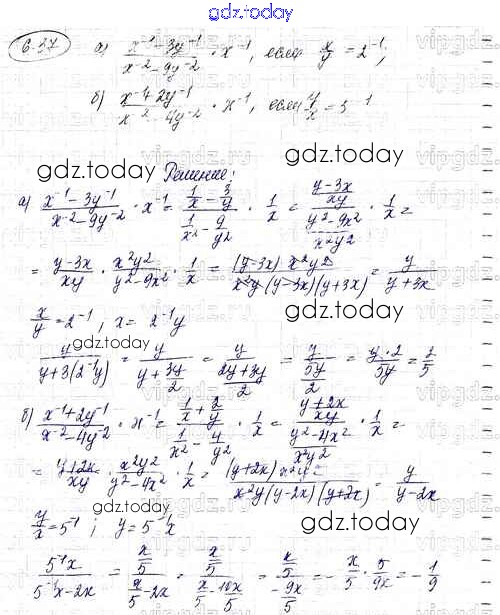 gdz.today
6.37 а) \frac{x^{-1} - 3y^{-1}}{x^{-2} - 9y^{-2}} · x^{-1}, если \frac{x}{y} = 2^{-1};
б) \frac{x^{-1} + 2y^{-1}}{x^{-2} - 4y^{-2}} · x^{-1}, если \frac{y}{x} = 5^{-1}
gdz.today
gdz.today
Решение:
а) \frac{x^{-1} - 3y^{-1}}{x^{-2} - 9y^{-2}} · x^{-1} = \frac{\frac{1}{x} - \frac{3}{y}}{\frac{1}{x^2} - \frac{9}{y^2}} · \frac{1}{x} = \frac{\frac{y-3x}{xy}}{\frac{y^2-9x^2}{x^2y^2}} · \frac{1}{x} =
= \frac{y-3x}{xy} · \frac{x^2y^2}{y^2-9x^2} · \frac{1}{x} = \frac{(y-3x) x^2y^2}{x^2y(y-3x)(y+3x)} = \frac{y}{y+3x}
\frac{x}{y} = 2^{-1}, x = 2^{-1}y
gdz.today
gdz.today
\frac{y}{y+3(2^{-1}y)} = \frac{y}{y+\frac{3y}{2}} = \frac{y}{\frac{2y+3y}{2}} = \frac{y}{\frac{5y}{2}} = \frac{y·2}{5y} = \frac{2}{5}
б) \frac{x^{-1}+2y^{-1}}{x^{-2}-4y^{-2}} · x^{-1} = \frac{\frac{1}{x} + \frac{2}{y}}{\frac{1}{x^2} - \frac{4}{y^2}} · \frac{1}{x} = \frac{\frac{y+2x}{xy}}{\frac{y^2-4x^2}{x^2y^2}} · \frac{1}{x} =
gdz.today
gdz.today
= \frac{y+2x}{xy} · \frac{x^2y^2}{y^2-4x^2} · \frac{1}{x} = \frac{(y+2x) x^2y^2}{x^2y(y-2x)(y+2x)} = \frac{y}{y-2x}
\frac{y}{x} = 5^{-1}; y = 5^{-1}x
gdz.today
gdz.today
\frac{5^{-1}x}{5^{-1}x-2x} = \frac{\frac{x}{5}}{\frac{x}{5}-2x} = \frac{\frac{x}{5}}{\frac{x-10x}{5}} = \frac{\frac{x}{5}}{\frac{-9x}{5}} = -\frac{x}{5} · \frac{5}{9x} = -\frac{1}{9}
gdz.today